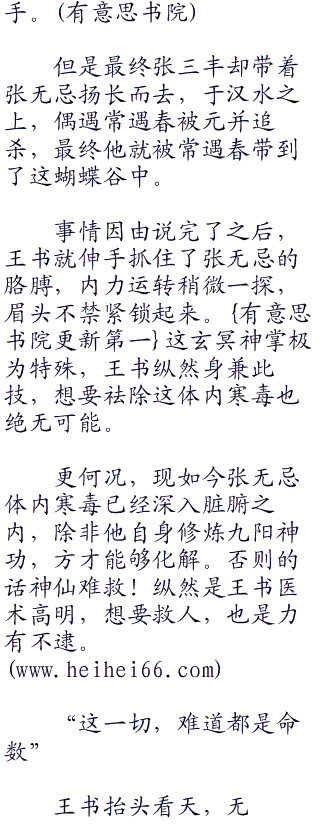 手。(有意思书院)
但是最终张三丰却带着
张无忌扬长而去，于汉水之
上，偶遇常遇春被元并追
杀，最终他就被常遇春带到
了这蝴蝶谷中。
事情因由说完了之后，
王书就伸手抓住了张无忌的
胳膊，内力运转稍微一探，
眉头不禁紧锁起来。{有意思
书院更新第一}这玄冥神掌极
为特殊，王书纵然身兼此
技，想要祛除这体内寒毒也
绝无可能。
更何况，现如今张无忌
体内寒毒已经深入脏腑之
内，除非他自身修炼九阳神
功，方才能够化解。否则的
话神仙难救！纵然是王书医
术高明，想要救人，也是力
有不逮。
(www.heihei66.com)
“这一切，难道都是命
数”
王书抬头看天，无